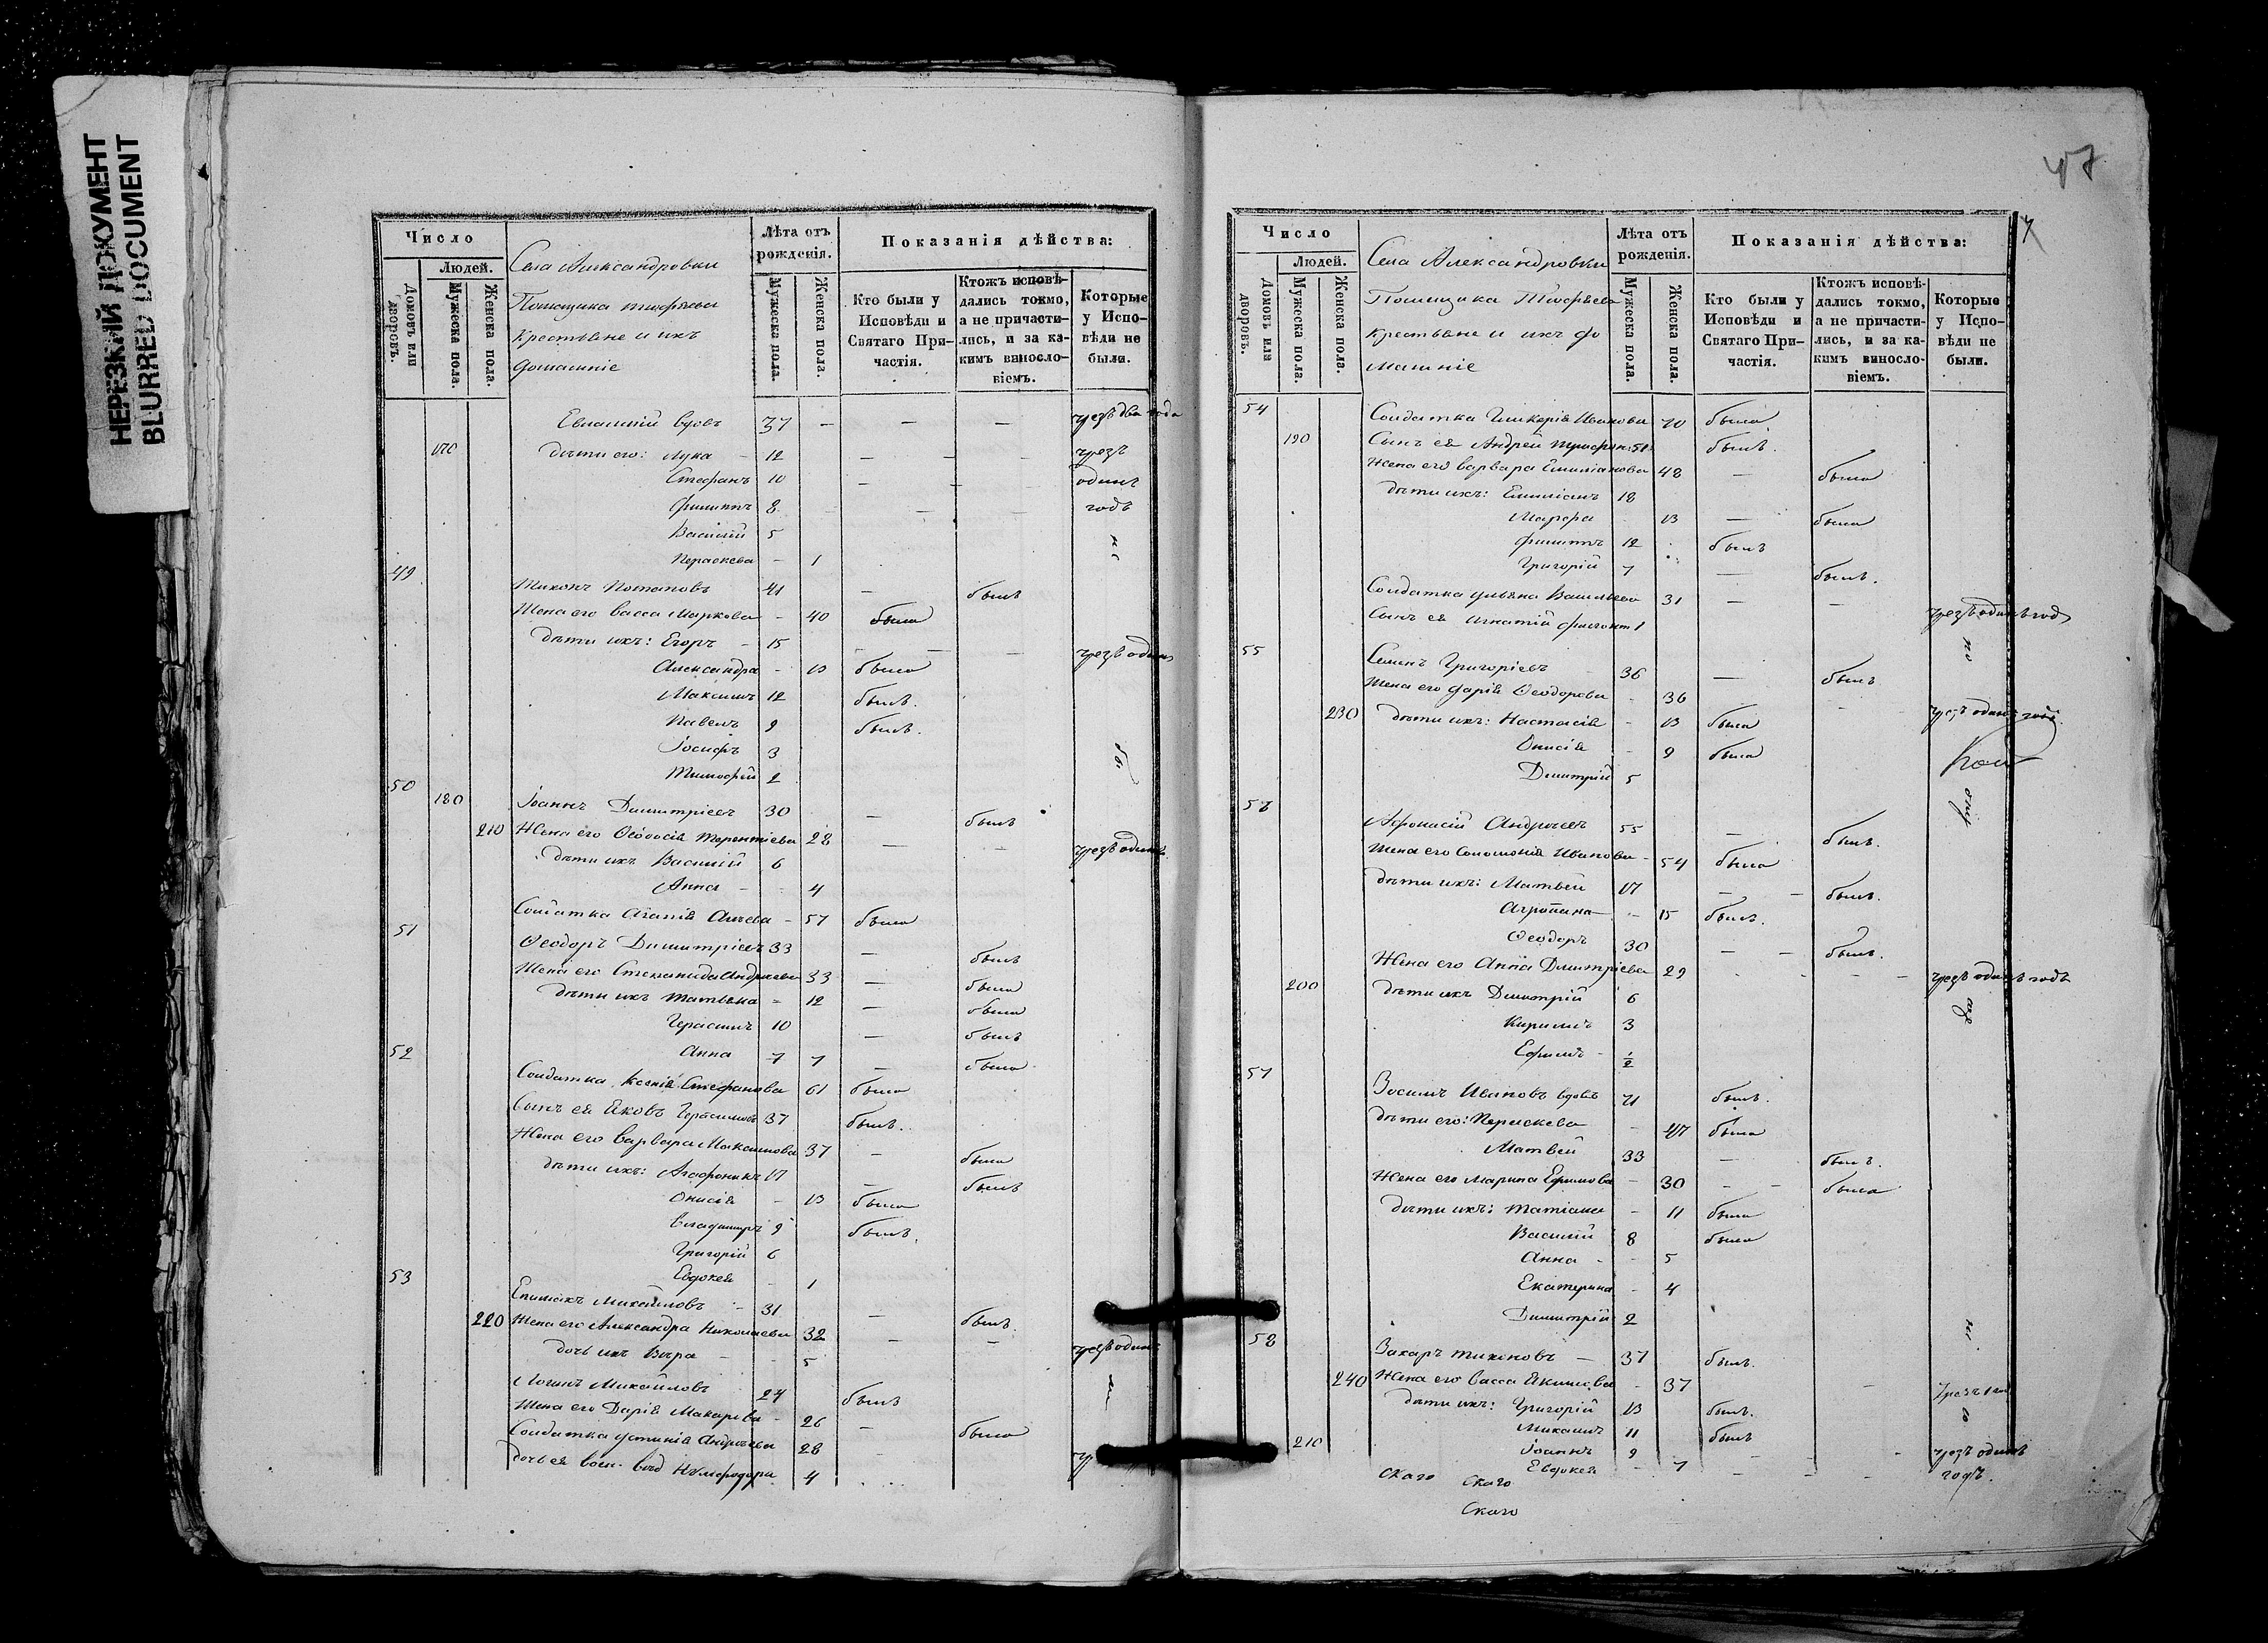 НЕРЕЗКИЙ ДОКУМЕНТ
BLURRED DOCUMENT
Число
Людей.
Домовъ или дворовъ.
Мужеска пола.
Женска пола.
Села Александровки
Помещика
Крестьяне и ихъ
домашніе
Лѣта отъ рожденія.
Мужеска пола.
Женска пола.
Показанія дѣйства:
Кто были у Исповѣди и Святаго Причастія.
Ктожъ исповѣдались токмо, а не причастились, и за какимъ винословіемъ.
Которые у Исповѣди не были.
вдовъ 37 — — — чрезъ два года
170 дѣти его: Лука — 12 — — чрезъ
Стефанъ 10 — — одинъ
Филиппъ 8 — — годъ
Василій 5
Пераскева — 1
49
Тихонъ Потаповъ 41 — былъ
Жена его Васса Маркова — 40 была
дѣти ихъ: Егоръ — 15 — — чрезъ одинъ
Александра — 13 была
Максимъ 12 былъ.
Павелъ 9 былъ.
Іосифъ 3
Тимофей 2
50 180 Іоаннъ Димитріевъ 30 — былъ
210 Жена его Ѳеодосія Терентіева 28 — — чрезъ одинъ
дѣти ихъ Василій 6
Анна — 4
Солдатка Агапія — 57 была
51
Ѳеодоръ Димитріевъ 33 — былъ
Жена его Степанида Андреева 33 — была
дѣти ихъ Татьяна — 12 — была
Герасимъ 10 — былъ
52 Анна 7 7 — была
Солдатка Ксенія Стефанова 61 была
Сынъ ея Яковъ Герасимовъ 37 былъ.
Жена его Варвара Максимова 37 — была
дѣти ихъ: Агафоникъ 17 — былъ
Онисія — 13 была
Владимиръ 9 былъ.
Григорій 6
53 Евдокея — 1
Епимахъ Михайловъ — 31 — былъ.
220 Жена его Александра Николаева 32 — — чрезъ одинъ
дочь ихъ Вѣра — 5
Логинъ Михайловъ 27 былъ
Жена его Дарія Макарова — 26 — была
Солдатка Устинія Андреева 28
дочь ея 4
47
Число
Людей.
Домовъ или дворовъ.
Мужеска пола.
Женска пола.
Села Александровки
Помещика
крестьяне и ихъ до
машніе
Лѣта отъ рожденія.
Мужеска пола.
Женска пола.
Показанія дѣйства:
Кто были у Исповѣди и Святаго Причастія.
Ктожъ исповѣдались токмо, а не причастились, и за какимъ винословіемъ.
Которые у Исповѣди не были.
54 Солдатка Гликерія Иванова 70 была
190 Сынъ ея Андрей 51 былъ.
Жена его Варвара Емиліанова 48 — была
дѣти ихъ: Емиліанъ 18
Марфа 13 — была
Филиппъ 12 былъ
Григорій 7 — былъ.
Солдатка Ульяна Васильева 31 — — чрезъ одинъ годъ
Сынъ ея Игнатій 1
55
Семенъ Григоріевъ 36 — былъ
Жена его Дарія Ѳеодорова — 36 — — чрезъ одинъ годъ
230 дѣти ихъ: Настасія — 13 была
Онисія — 9 была
Димитрій 5
56
Афонасій Андреевъ 55 — былъ.
Жена его Соломонія Иванова — 54 была
дѣти ихъ: Матвей 17 — — былъ.
Агрипина — 15 былъ.
Ѳеодоръ 30 — — былъ.
Жена его Анна Дмитріева 29 — — чрезъ одинъ годъ
200 дѣти ихъ Димитрій 6
Кирилъ 3
Ефимъ — 1/2
57
Иванов вдовъ 71 былъ.
дѣти его: Пераскева — 47 была
Матвей 33 — былъ.
Жена его Марина Ефимова — 30 — — была
дѣти ихъ: Татіана — 11 была
Василій 8 была
Анна — 5
Екатерина — 4
Димитрій 2
58
Захаръ Тихоновъ — 37 былъ.
240 Жена его Васса Якимова — 37 — чрезъ 1 го
дѣти ихъ: Григорій 13 былъ.
Михаилъ 11 былъ
210 Іоаннъ 9 — чрезъ одинъ
Евдокея — 7 — — — годъ.
скаго скаго
скаго